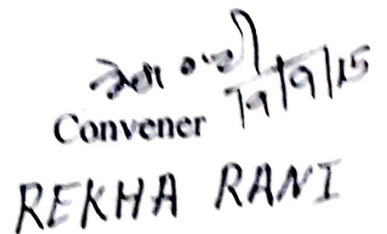 19/9/15
Convener
REKHA RANI